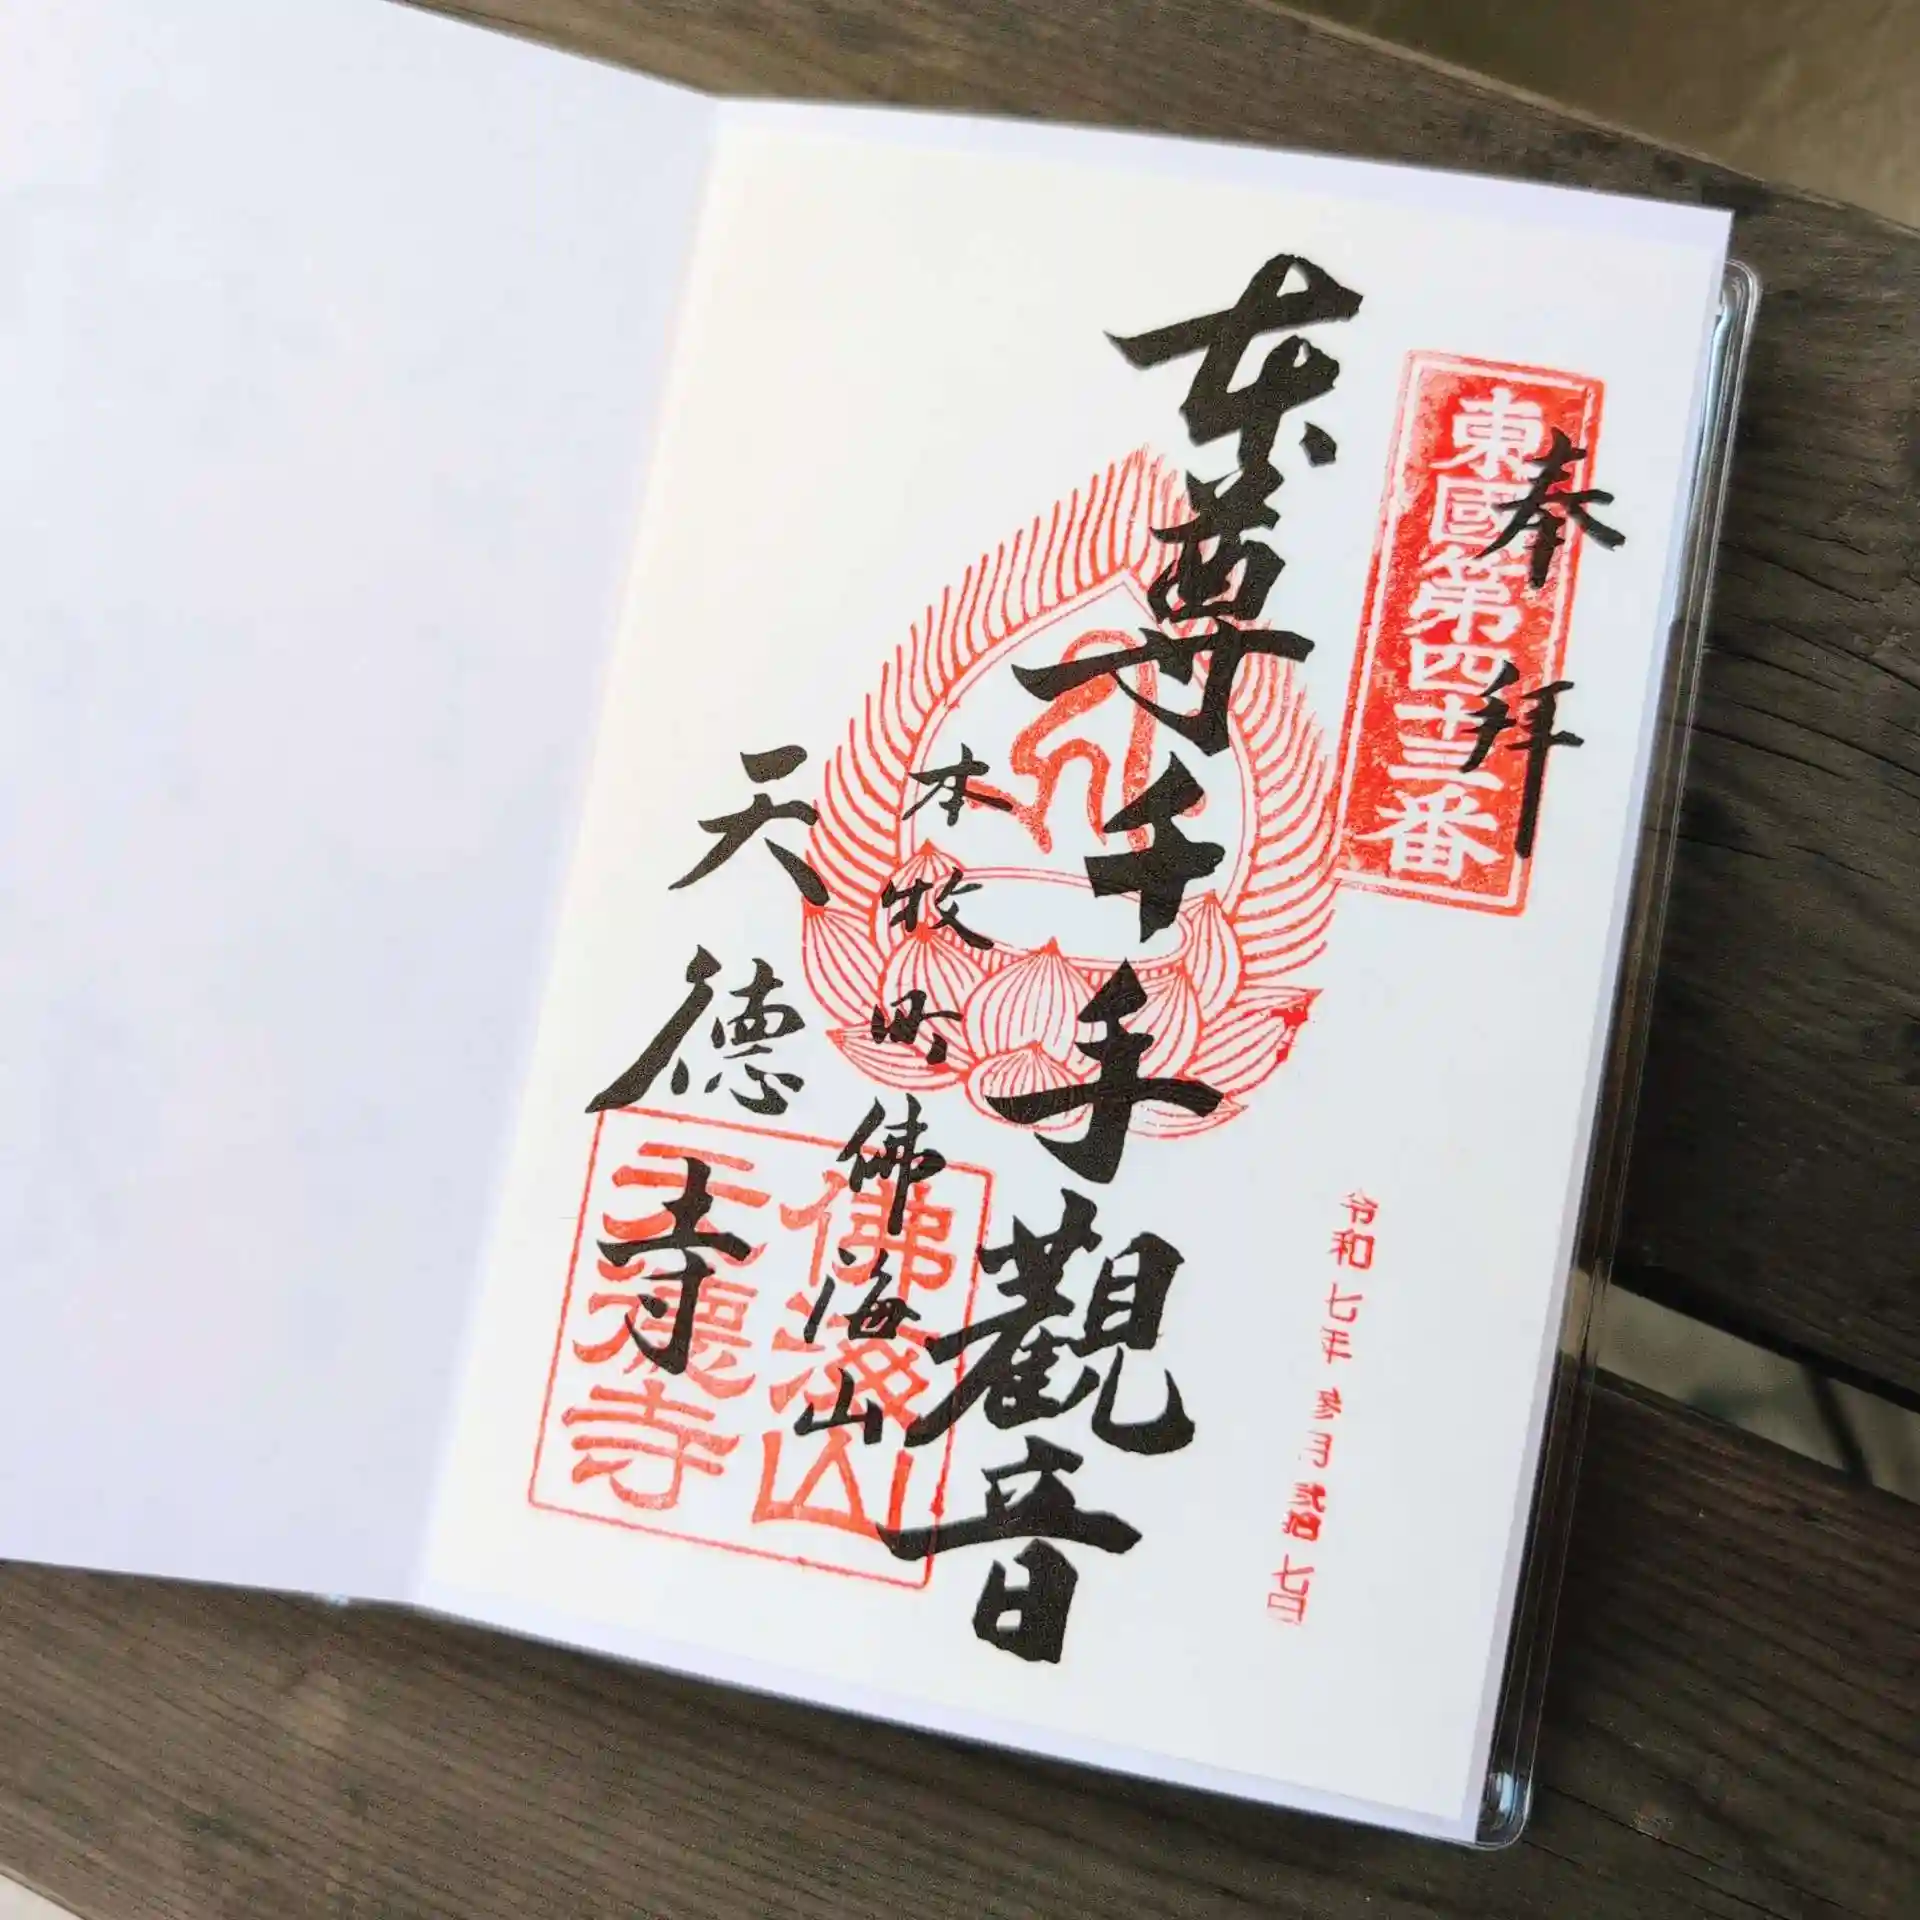 奉拝
東國第四十三番
令和七年参月弐拾七日
本尊千手觀音
本牧町佛海山
天徳寺
佛海山
天徳寺